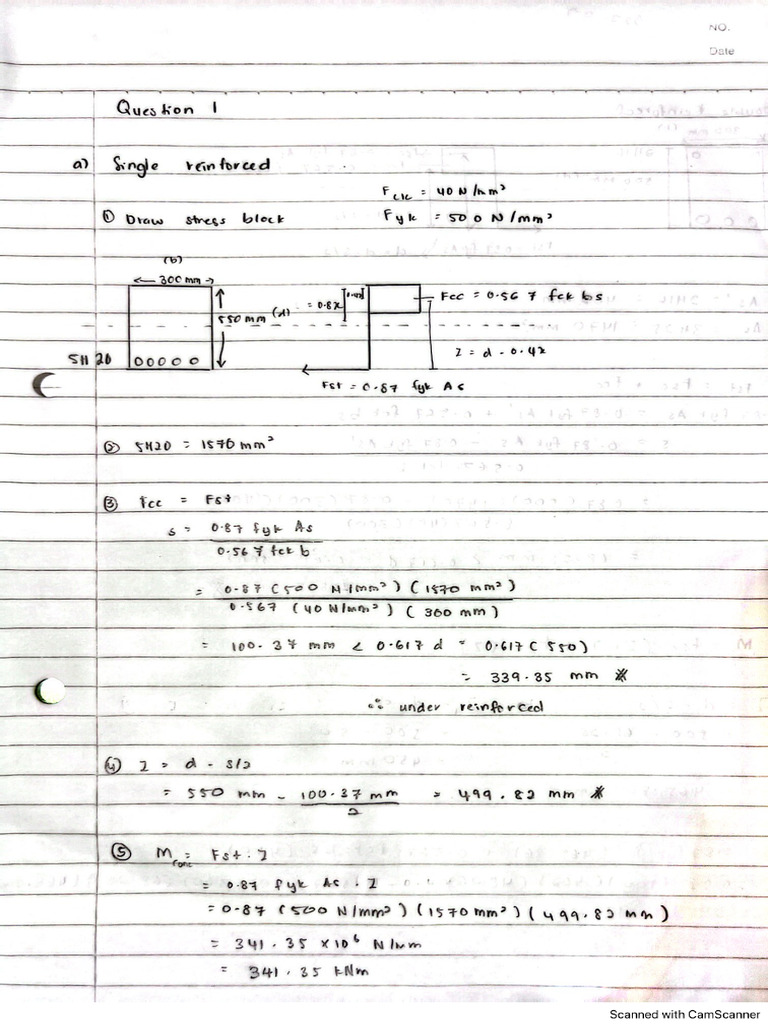 NO.
Date
Question 1
a) Single reinforced
Fck = 40 N/mm²
① Draw stress block
Fyk = 500 N/mm²
(b)
300 mm
550 mm (d)
= 0.8x
Fcc = 0.567 fck b s
Z = d - 0.4x
5H20
Fst = 0.87 fyk As
② 5H20 = 1570 mm²
③ Fcc = Fst
s = 0.87 fyk As
0.567 fck b
= 0.87 (500 N/mm²) (1570 mm²)
0.567 (40 N/mm²) (300 mm)
= 100.37 mm < 0.617 d = 0.617 (550)
= 339.35 mm
∴ under reinforced
④ Z = d - s/2
= 550 mm - 100.37 mm = 499.82 mm
2
⑤ Mconc = Fst . Z
= 0.87 fyk As . Z
= 0.87 (500 N/mm²) (1570 mm²) (499.82 mm)
= 341.35 x 10⁶ N/mm
= 341.35 kNm
Scanned with CamScanner